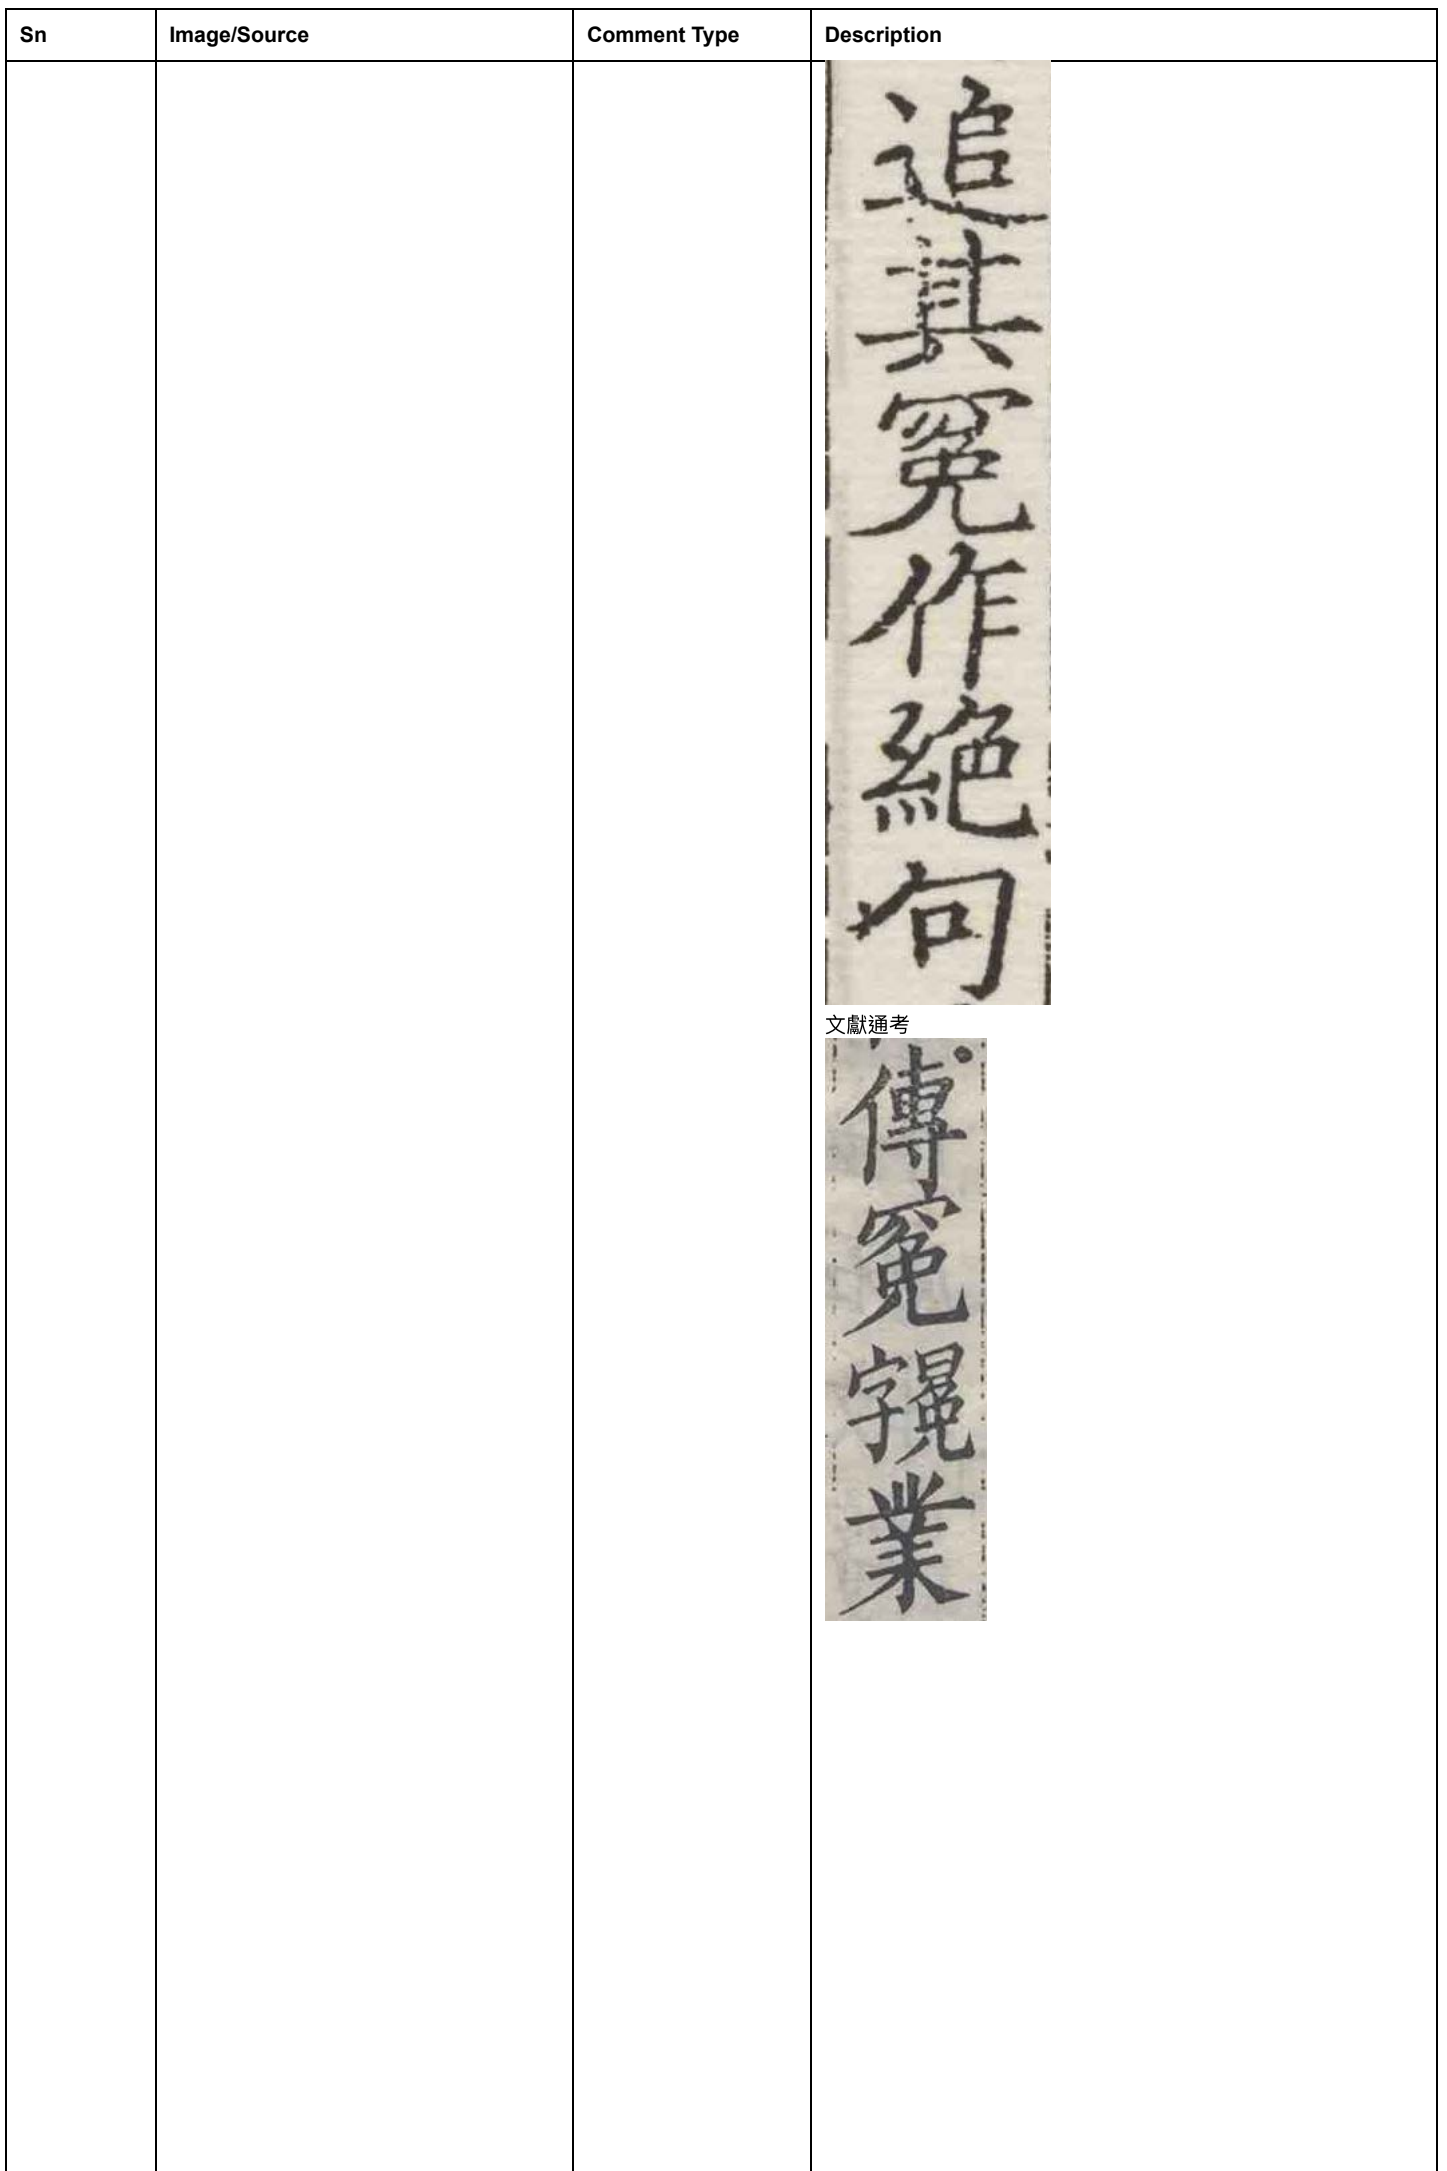 Sn Image/Source Comment Type Description
追其作絶句
文獻通考
傳業